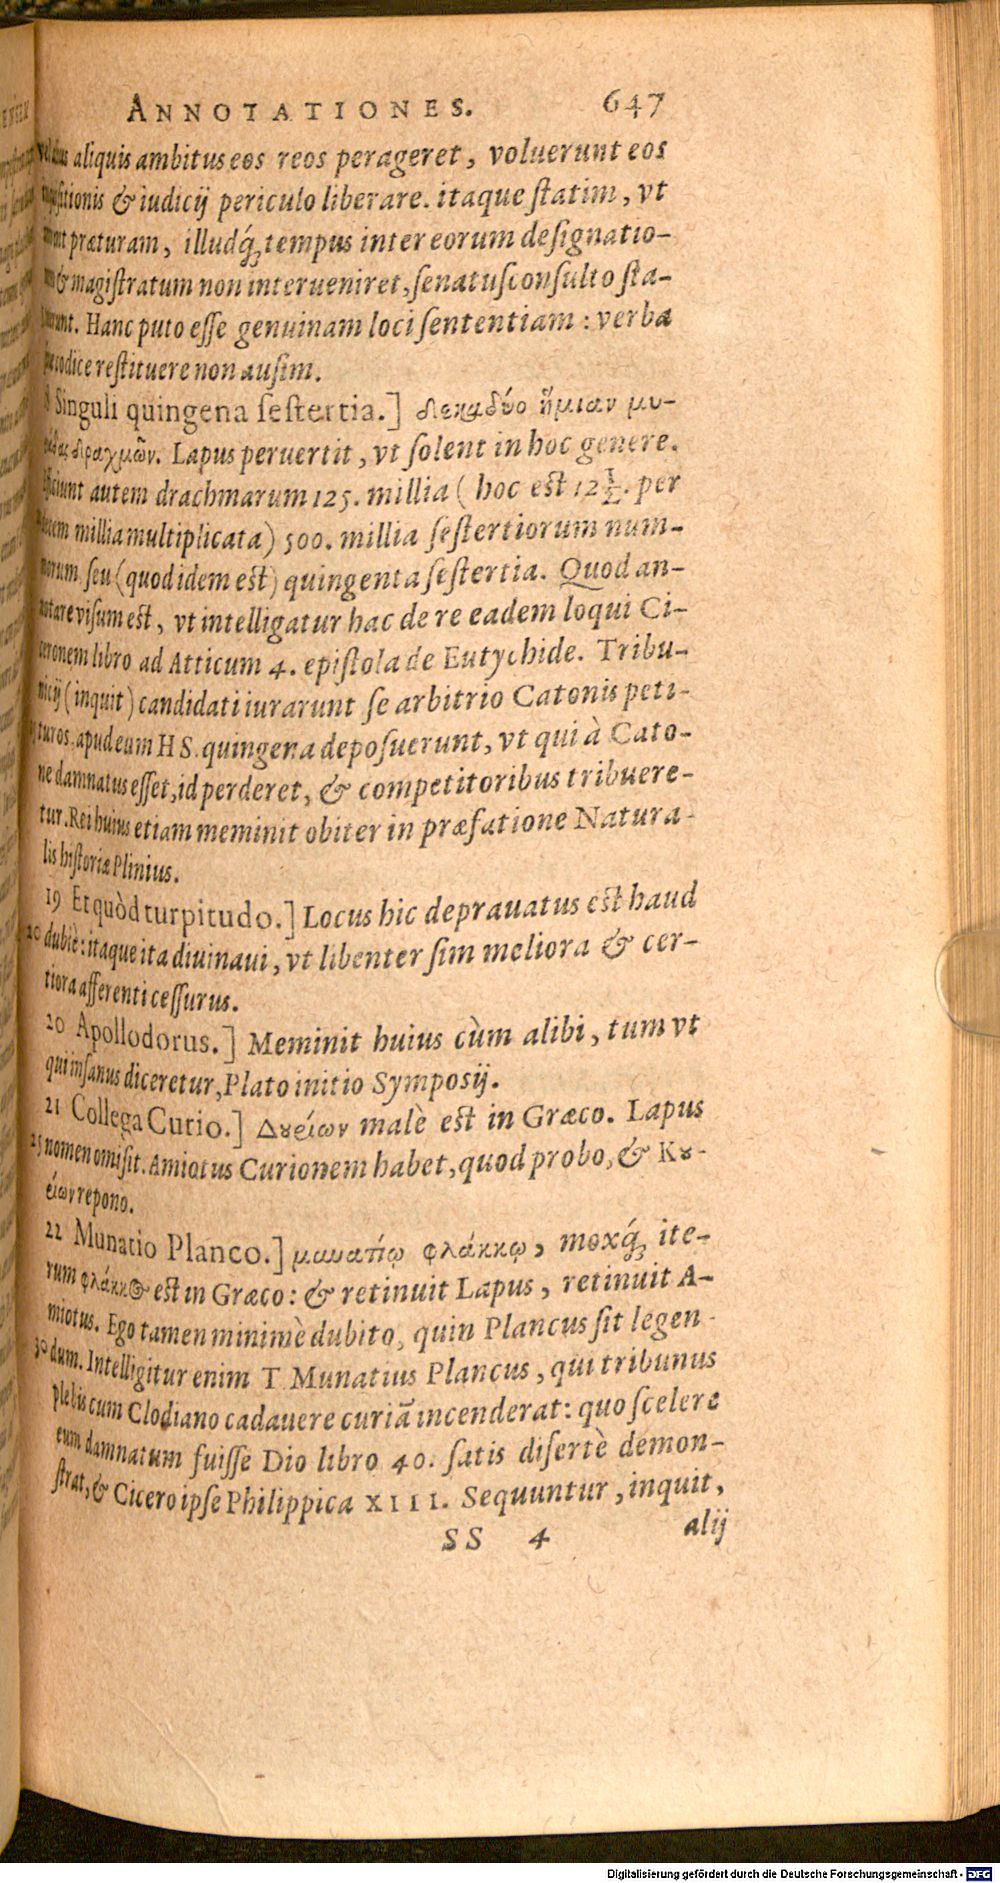 ANNOTATIONES. 647
aliquis ambitus eos reos perageret, voluerunt eos
& iudicij periculo liberare. itaque statim, vt
præturam, illudq́; tempus inter eorum designatio-
& magistratum non interueniret, senatusconsulto sta-
Hanc puto esse genuinam loci sententiam : verba
codice restituere non ausim.
Singuli quingena sestertia.] δεκαδύο ἥμισυν μυ-
δραχμῶν. Lapus peruertit, vt solent in hoc genere.
autem drachmarum 125. millia ( hoc est 12 1/2. per
millia multiplicata) 500. millia sestertiorum num-
norum seu (quod idem est) quingenta sestertia. Quod an-
notare visum est, vt intelligatur hac de re eadem loqui Ci-
ceronem libro ad Atticum 4. epistola de Eutychide. Tribu-
nicij (inquit) candidati iurarunt se arbitrio Catonis peti-
turos. apud eum HS. quingena deposuerunt, vt qui à Cato-
ne damnatus esset, id perderet, & competitoribus tribuere-
tur. Rei huius etiam meminit obiter in præfatione Natura-
lis historiæ Plinius.
19 Et quòd turpitudo.] Locus hic deprauatus est haud
20 dubiè : itaque ita diuinaui, vt libenter sim meliora & cer-
tiora afferenti cessurus.
20 Apollodorus.] Meminit huius cùm alibi, tum vt
qui insanus diceretur, Plato initio Symposij.
21 Collega Curio.] Δȣρίων malè est in Græco. Lapus
25 nomen omisit. Amiotus Curionem habet, quod probo, & Kȣ-
ρίων repono.
22 Munatio Planco.] μουνατίῳ φλάκκῳ, moxq́; ite-
rum φλάκκος est in Græco : & retinuit Lapus, retinuit A-
miotus. Ego tamen minimè dubito, quin Plancus sit legen-
30 dum. Intelligitur enim T. Munatius Plancus, qui tribunus
plebis cum Clodiano cadauere curiã incenderat : quo scelere
eum damnatum fuisse Dio libro 40. satis disertè demon-
strat, & Cicero ipse Philippica XIII. Sequuntur, inquit,
SS 4 alij
Digitalisierung gefördert durch die Deutsche Forschungsgemeinschaft - DFG